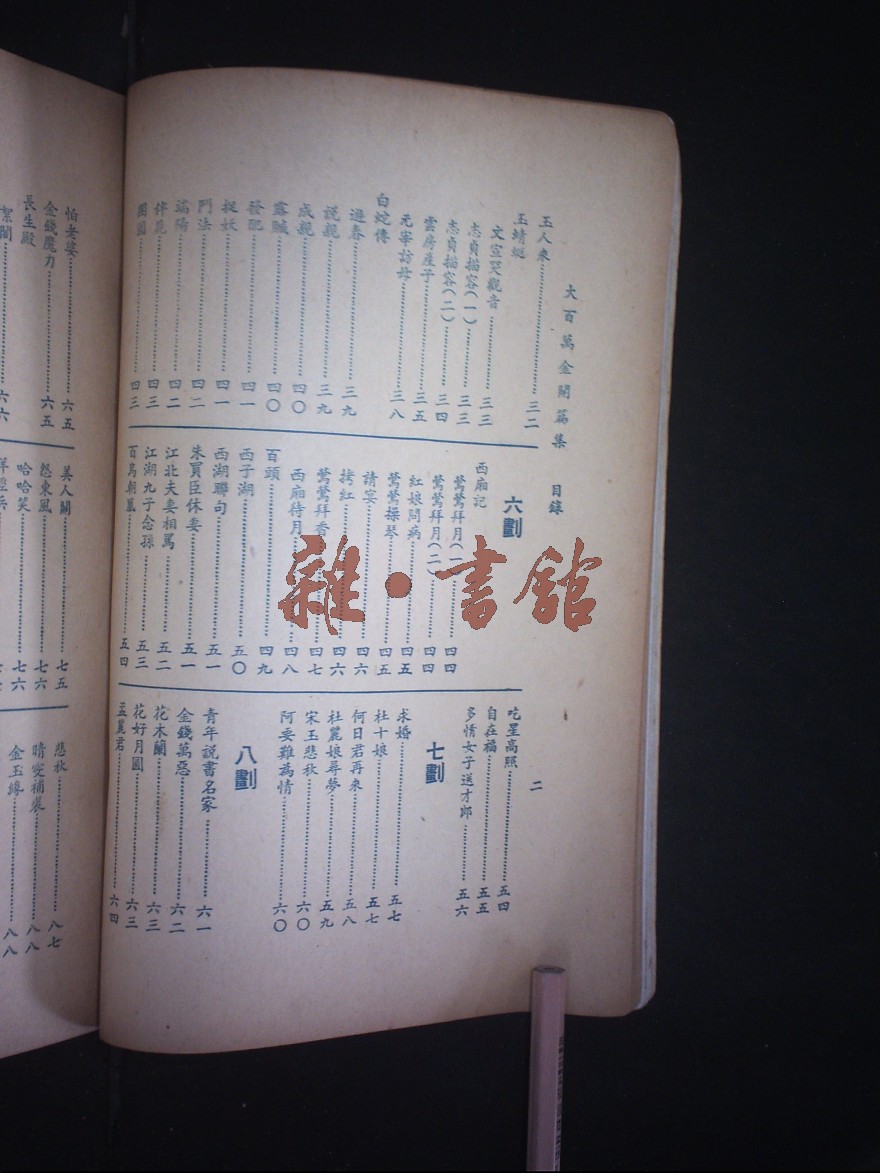 大百萬金開篇集 目錄 二
玉人來 三二
玉蜻蜓
文宣哭觀音 三三
志貞描容（一） 三三
志貞描容（二） 三四
雲房產子 三五
元宰訪母 三八
白蛇傳
遊春 三九
說親 三九
成親 四〇
露贓 四〇
發配 四一
捉妖 四一
鬥法 四二
端陽 四二
伴昆 四三
團圓 四三
六劃
西廂記
鶯鶯拜月（一） 四四
鶯鶯拜月（二） 四四
紅娘問病 四五
鶯鶯操琴 四五
請宴 四六
拷紅 四六
鶯鶯拜香 四七
西廂待月 四八
百頭 四九
西子湖 五〇
西湖聯句 五一
朱買臣休妻 五一
江北夫妻相罵 五二
江湖九子念孫 五三
百鳥朝鳳 五四
吃星高照 五四
自在福 五五
多情女子送才郎 五六
七劃
求婚 五七
杜十娘 五七
何日君再來 五八
杜麗娘尋夢 五九
宋玉悲秋 六〇
阿要難為情 六〇
八劃
青年說書名家 六一
金錢萬惡 六二
花木蘭 六三
花好月圓 六三
孟麗君 六四
怕老婆 六五
金錢魔力 六五
長生殿
絮閣 六六
美人關 七五
怨東風 七六
哈哈笑 七六
悲秋 八七
晴雯補裘 八八
金玉緣 八八
雜·書館